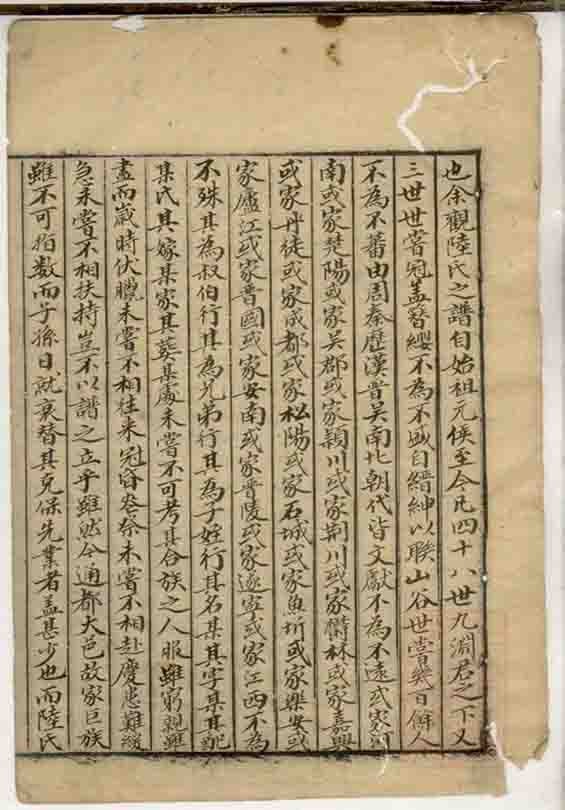 也余觀陸氏之譜自始祖元侯至今凡四十八世九淵君之下又
三世世嘗冠盖簪纓不為不盛自縉紳以聯山谷世嘗幾百餘人
不為不蕃由周秦歷漢晉吳南北朝代皆文獻不為不遠或家河
南或家楚陽或家吳郡或家潁川或家荆川或家欝林或家嘉興
或家丹徒或家成都或家松陽或家石城或家魚圻或家樂安或
家廬江或家晋國或家安南或家晋陵或家遂寜或家江西不為
不殊其為叔伯行其為兄弟行其為子姪行其名某其字某其配
某氏其嫁某家其葬某處未嘗不可考其合族之人服雖窮親雖
盡而歲時伏臘未嘗不相徃来冠昏丧祭未嘗不相赴慶患難緩
急未嘗不相扶持豈不以譜之立乎雖然今通都大邑故家巨族
雖不可指数而子孫日就衰替其克保先業者盖甚少也而陸氏